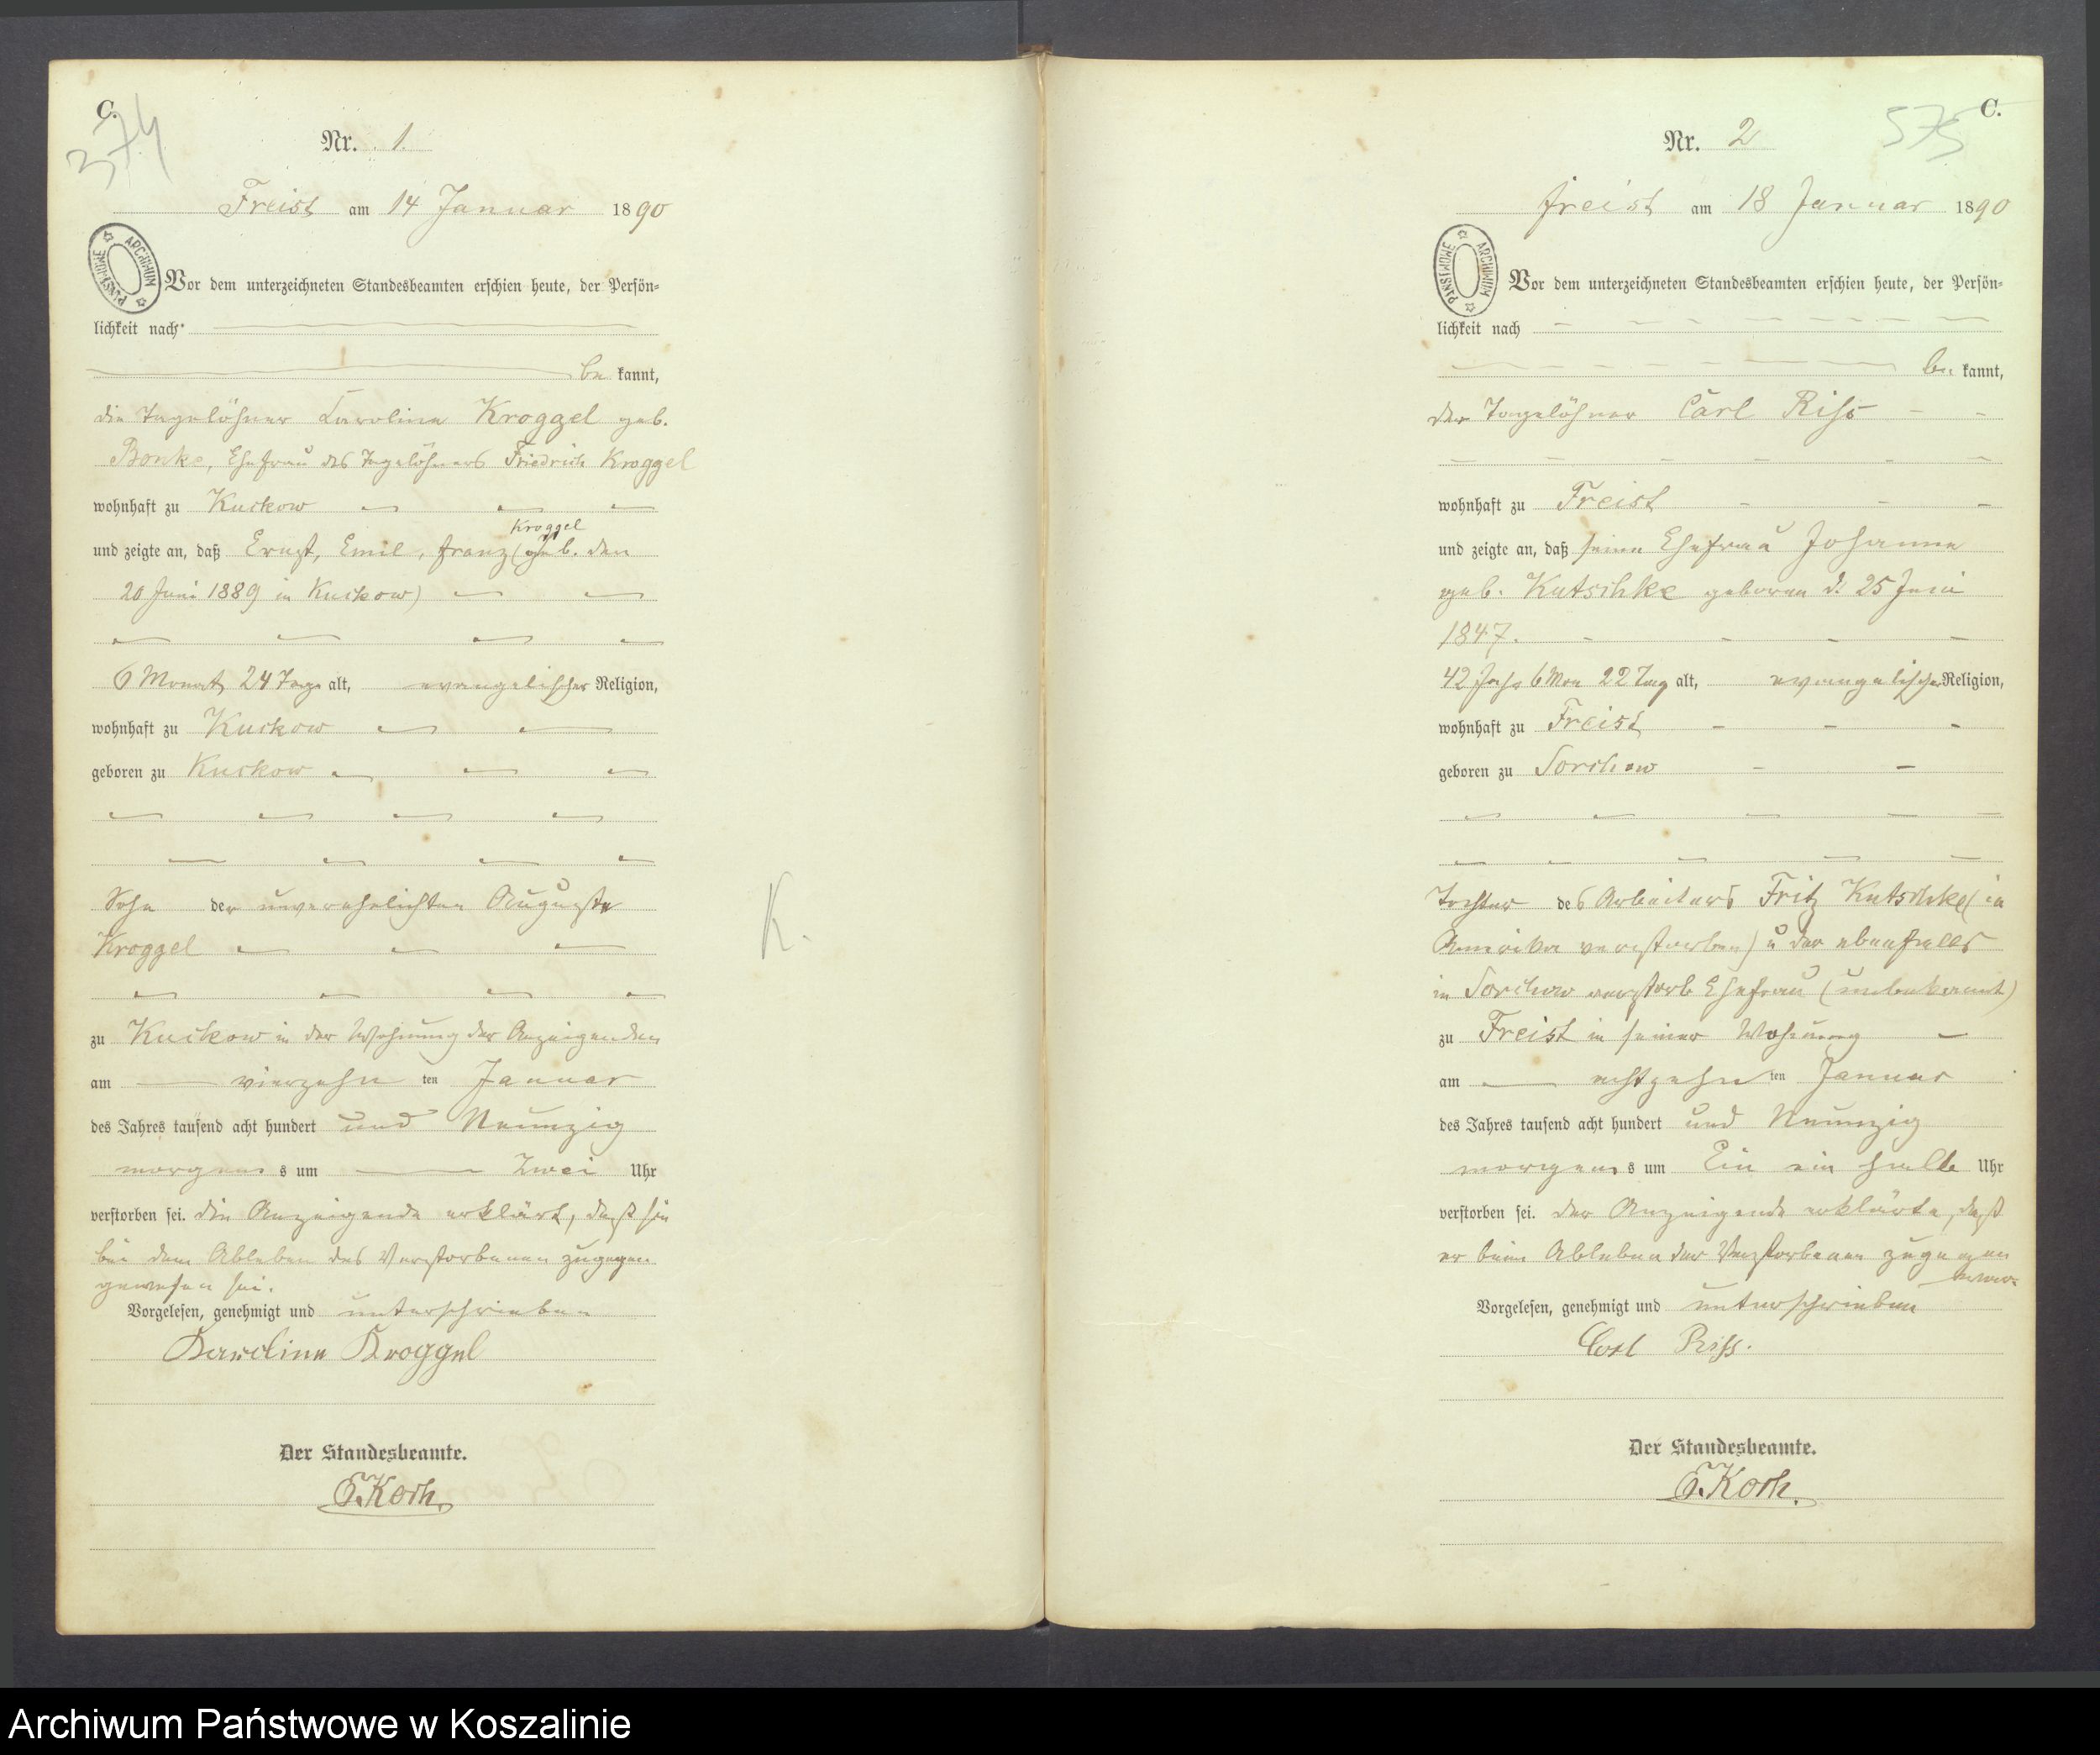 C.
374
Nr. 1.
Freist am 14 Januar 1890
ARCHIWUM PAŃSTWOWE
Vor dem unterzeichneten Standesbeamten erschien heute, der Persön-
lichkeit nach
be kannt,
die Tagelöhner Karoline Kroggel geb.
Bonke, Ehefrau des Tagelöhners Friedrich Kroggel
wohnhaft zu Kuckow
Kroggel
und zeigte an, daß Ernst, Emil, Franz (geb. den
20 Juni 1889 in Kuckow)
6 Monat 24 Tage alt, evangelischer Religion,
wohnhaft zu Kuckow
geboren zu Kuckow
Sohn der unverehelichten Auguste
Kroggel
K.
zu Kuckow in der Wohnung der Anzeigenden
am vierzehn ten Januar
des Jahres tausend acht hundert und Neunzig
morgens um Zwei Uhr
verstorben sei. die Anzeigende erklärt, daß sie
bei dem Ableben des Verstorbenen zugegen
gewesen sei.
Vorgelesen, genehmigt und unterschrieben
Karoline Kroggel
Der Standesbeamte.
E. Koch
C.
575
Nr. 2
Freist am 18 Januar 1890
ARCHIWUM PAŃSTWOWE
Vor dem unterzeichneten Standesbeamten erschien heute, der Persön-
lichkeit nach
be kannt,
der Tagelöhner Carl Riss
wohnhaft zu Freist
und zeigte an, daß seine Ehefrau Johanne
geb. Kutschke geboren d. 25 Juni
1847.
42 Jahr 6 Mon 22 Tag alt, evangelischer Religion,
wohnhaft zu Freist
geboren zu Sorchow
Tochter des Arbeiters Fritz Kutschke (in
Amerika verstorben) u der ebenfalls
in Sorchow verstorb Ehefrau (unbekannt)
zu Freist in seiner Wohnung
am achtzehn ten Januar
des Jahres tausend acht hundert und Neunzig
morgens um Ein ein halb Uhr
verstorben sei. der Anzeigende erklärte, daß
er beim Ableben der Verstorbenen zugegen
war
Vorgelesen, genehmigt und unterschrieben
Carl Riss.
Der Standesbeamte.
E. Koch.
Archiwum Państwowe w Koszalinie